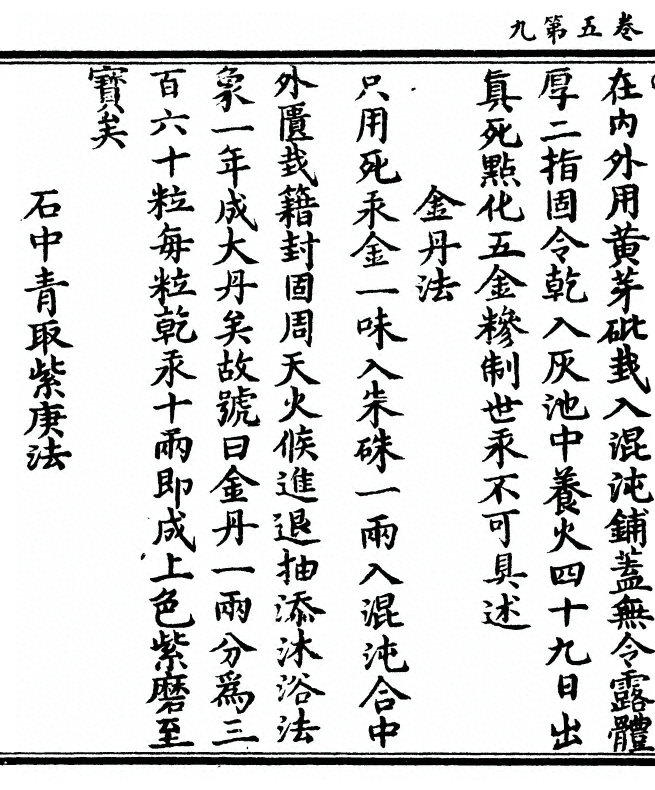 卷五第九
在內外用黄芽砒𢧵入混沌鋪蓋無令露體
厚二指固令乾入灰池中養火四十九日出
眞死點化五金糝制世汞不可具述
金丹法
只用死汞金一味入朱硃一兩入混沌合中
外匱𢧵籍封固周天火候進退抽添沐浴法
象一年成大丹矣故號曰金丹一兩分爲三
百六十粒每粒乾汞十兩即成上色紫磨至
寶矣
石中青取紫庚法